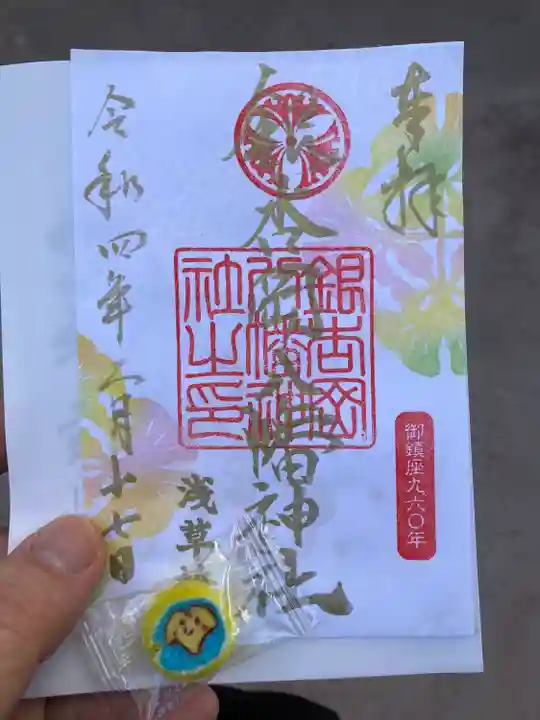 奉拝
銀杏岡八幡神社
銀杏岡
八幡神
社之印
御鎮座九六〇年
浅草
令和四年二月十七日